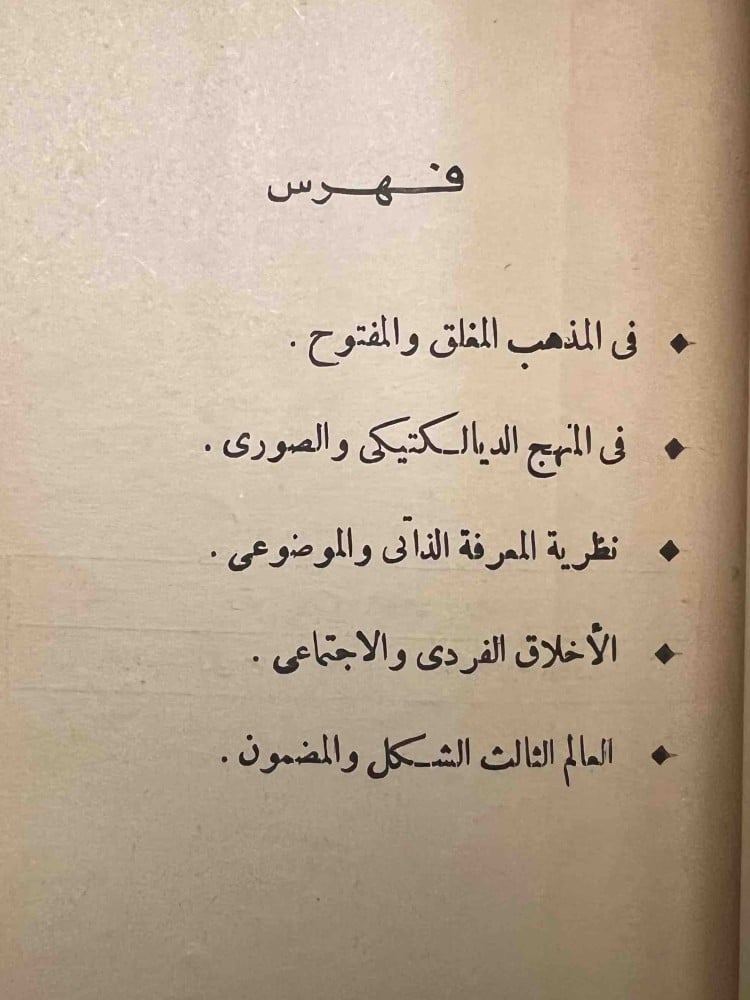 فهرس
◆ فى المذهب المغلق والمفتوح .
◆ فى المنهج الديالكتيكى والصورى .
◆ نظرية المعرفة الذاتى والموضوعى .
◆ الأخلاق الفردى والاجتماعى .
◆ العالم الثالث الشكل والمضمون .